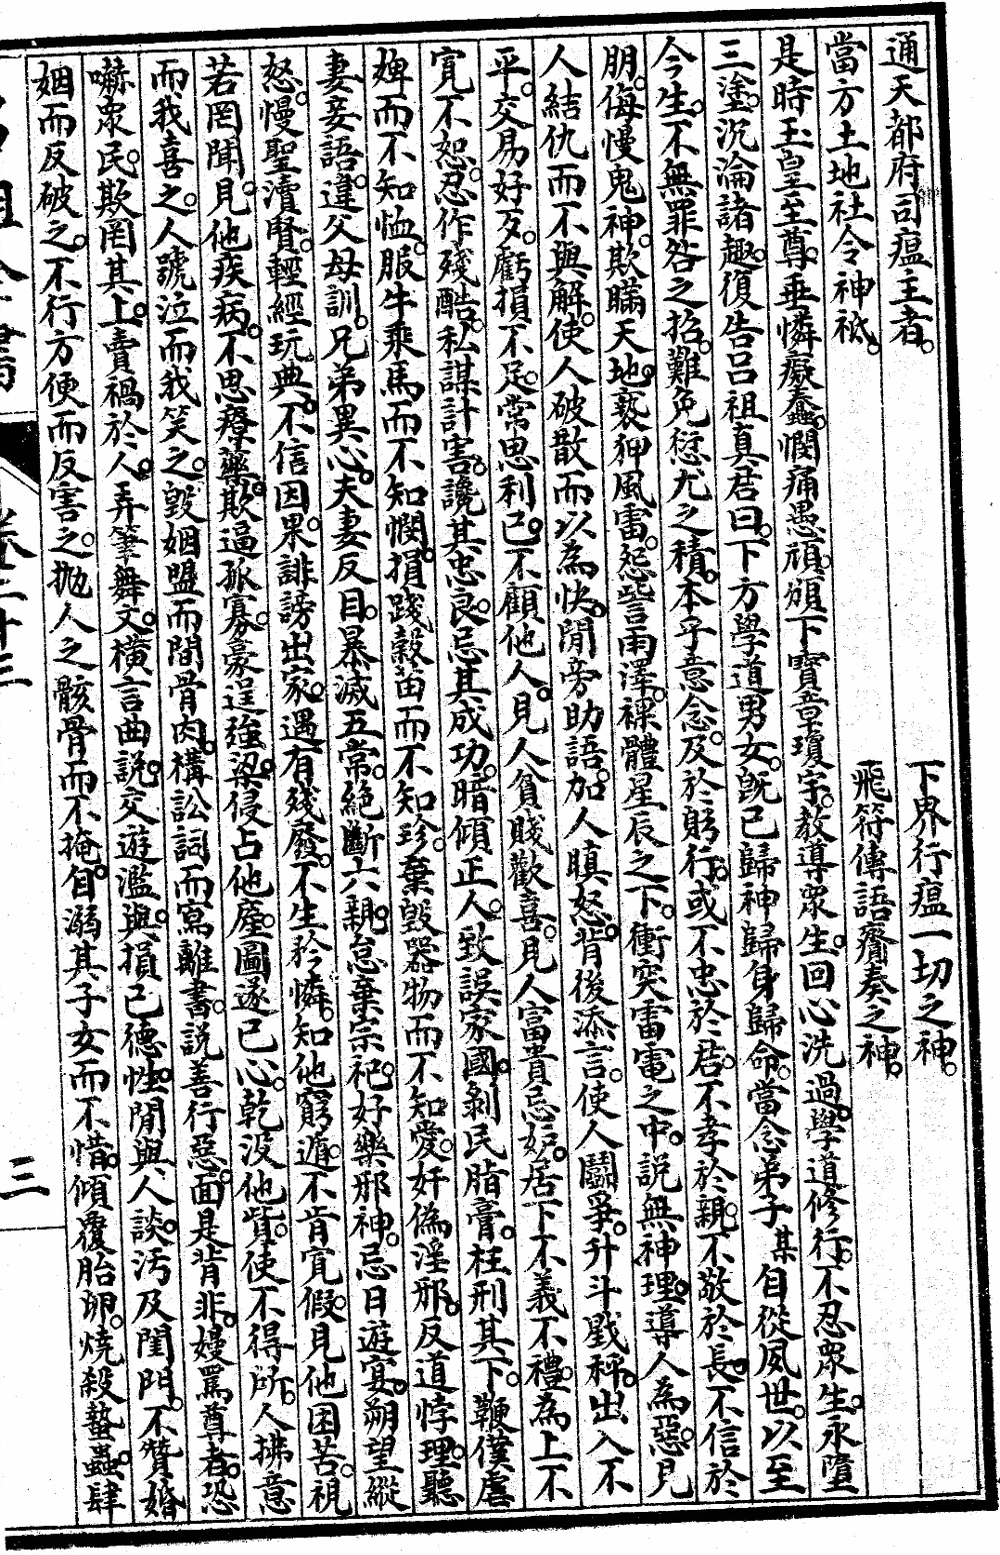 通天都府司瘟主者。　下界行瘟一切之神。
當方土地社令神祇。　飛符傳語齎奏之神。
是時玉皇至尊。垂憐癡蠢。憫痛愚頑。頒下寶章瓊字。教導眾生。回心洗過。學道修行。不忍眾生。永墮
三塗。沉淪諸趣。復告呂祖真君曰。下方學道男女。既已歸神歸身歸命。當念弟子某自從夙世。以至
今生。不無罪咎之招。難免愆尤之積。本乎意念。及於躬行。或不忠於君。不孝於親。不敬於長。不信於
朋。侮慢鬼神。欺瞞天地。褻狎風雷。怨訾雨澤。裸體星辰之下。衝突雷電之中。說無神理。導人為惡。見
人結仇而不與解。使人破散而以為快。閒旁助語。加人瞋怒。背後添言。使人鬭爭。升斗戥秤。出入不
平。交易好歹。虧損不足。常思利己。不顧他人。見人貧賤歡喜。見人富貴忌妬。居下不義不禮。為上不
寬不恕。忍作殘酷。私謀計害。讒其忠良。忌其成功。暗傾正人。致誤家國。剝民脂膏。枉刑其下。鞭僕虐
婢而不知恤。服牛乘馬而不知憫。損踐穀苗而不知珍。棄毀器物而不知愛。奸偽淫邪。反道悖理。聽
妻妾語。違父母訓。兄弟異心。夫妻反目。暴滅五常。絕斷六親。怠棄宗祀。好樂邪神。忌日遊宴。朔望縱
怒。慢聖瀆賢。輕經玩典。不信因果。誹謗出家。遇有殘廢。不生矜憐。知他窮遁。不肯寬假。見他困苦。視
若罔聞。見他疾病。不思療藥。欺逼孤寡。豪逞強梁。侵占他産。圖遂己心。乾沒他貲。使不得所。人拂意
而我喜之。人號泣而我笑之。毀姻盟而間骨肉。構訟詞而寫離書。說善行惡。面是背非。嫚罵尊者。恐
嚇眾民。欺罔其上。賣禍於人。弄筆舞文。橫言曲說。交遊濫與。損己德性。閒與人談。汚及閨門。不贊婚
姻而反破之。不行方便而反害之。拋人之骸骨而不掩。自溺其子女而不惜。傾覆胎卵。燒殺蟄蟲。肆
卷二十三
三